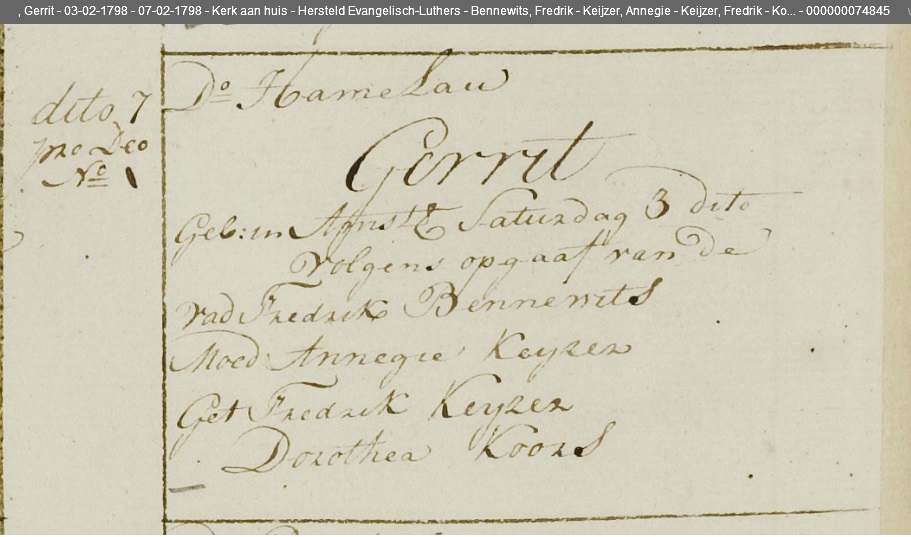 , Gerrit - 03-02-1798 - 07-02-1798 - Kerk aan huis - Hersteld Evangelisch-Luthers - Bennewits, Fredrik - Keijzer, Annegie - Keijzer, Fredrik - Ko... - 000000074845
dito 7
pro Deo
No 1
Do Hamelau
Gerrit
Geb: in Amst Saturdag 3 dito
volgens opgaaf van de
vad Fredrik Bennewits
Moed Annegie Keyzer
Get Fredrik Keyzer
Dorothea Koors